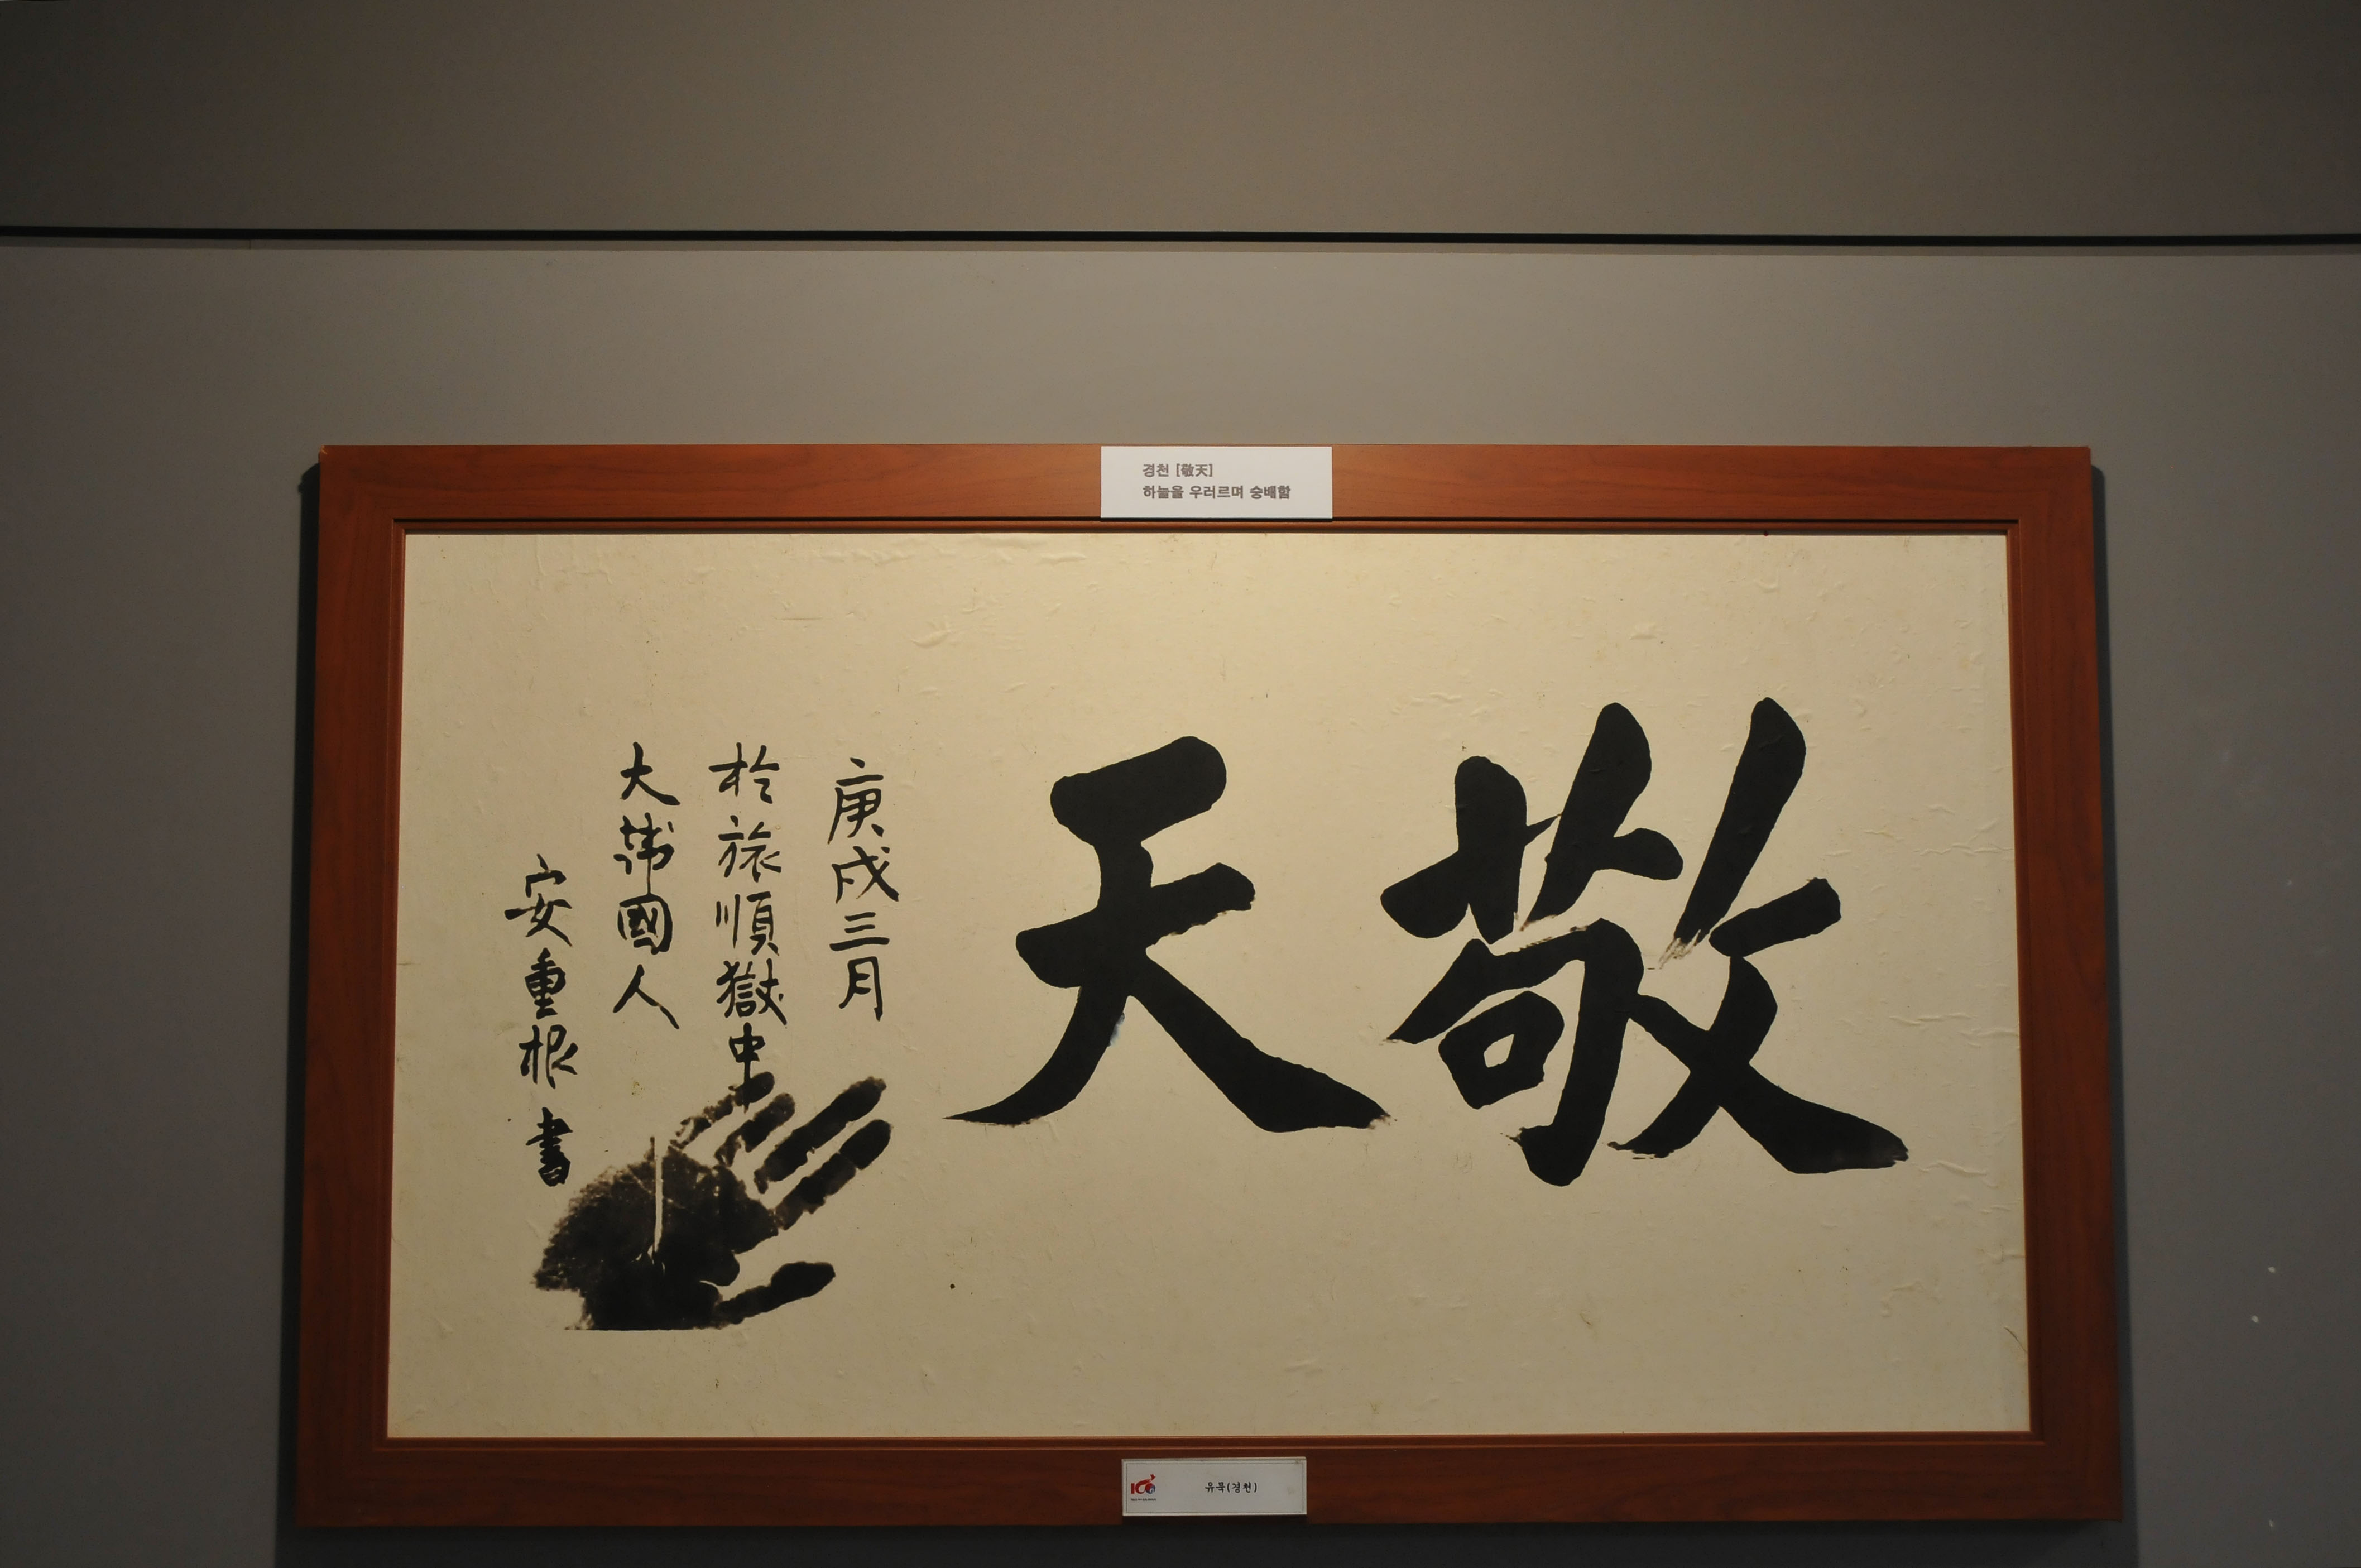 경천 [敬天]
하늘을 우러르며 숭배함
敬天
庚戌三月
於旅順獄中
大韓國人
安重根 書
100
유묵(경천)